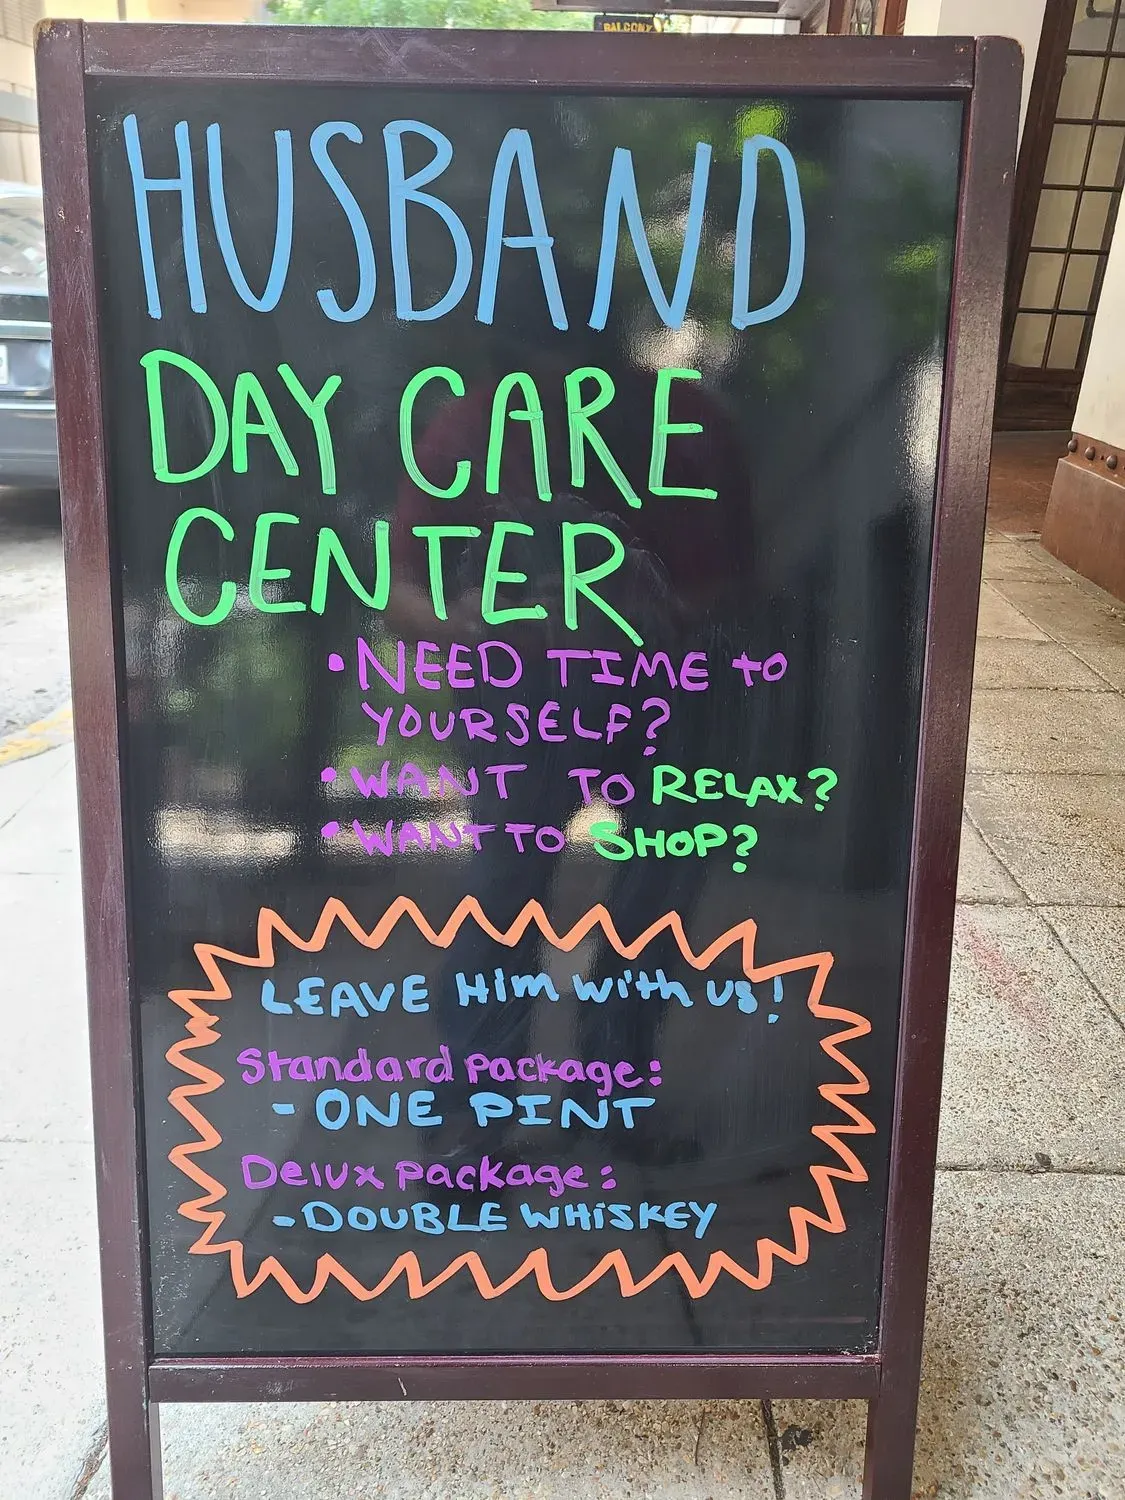 BALCONY
HUSBAND
DAY CARE
CENTER
• NEED TIME to
YOURSELF?
• WANT TO RELAX?
• WANT TO SHOP?
LEAVE Him with us!
Standard package:
- ONE PINT
Delux package:
- DOUBLE WHiSKEY